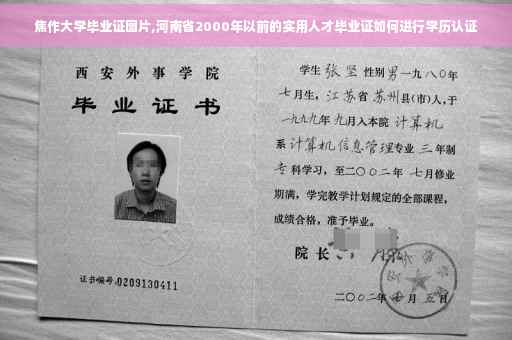 焦作大学毕业证图片,河南省2000年以前的实用人才毕业证如何进行学历认证
西安外事学院
毕业证书
证书编号:0209130411
学生张坚性别男一九八〇年
七月生,江苏省苏州县(市)人,于
一九九九年九月入本院计算机
系计算机信息管理专业三年制
专科学习,至二〇〇二年七月修业
期满,学完教学计划规定的全部课程,
成绩合格,准予毕业。
院长
二〇〇二年七月五日